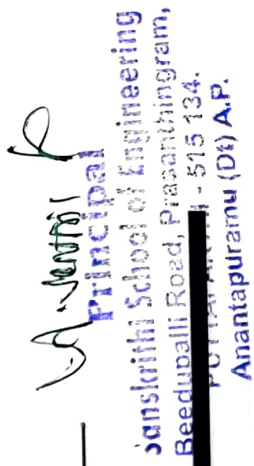 Principal
Sanskrithi School of Engineering
Beedupalli Road, Prasanthingram,
- 515 134.
Anantapuramu (Dt) A.P.